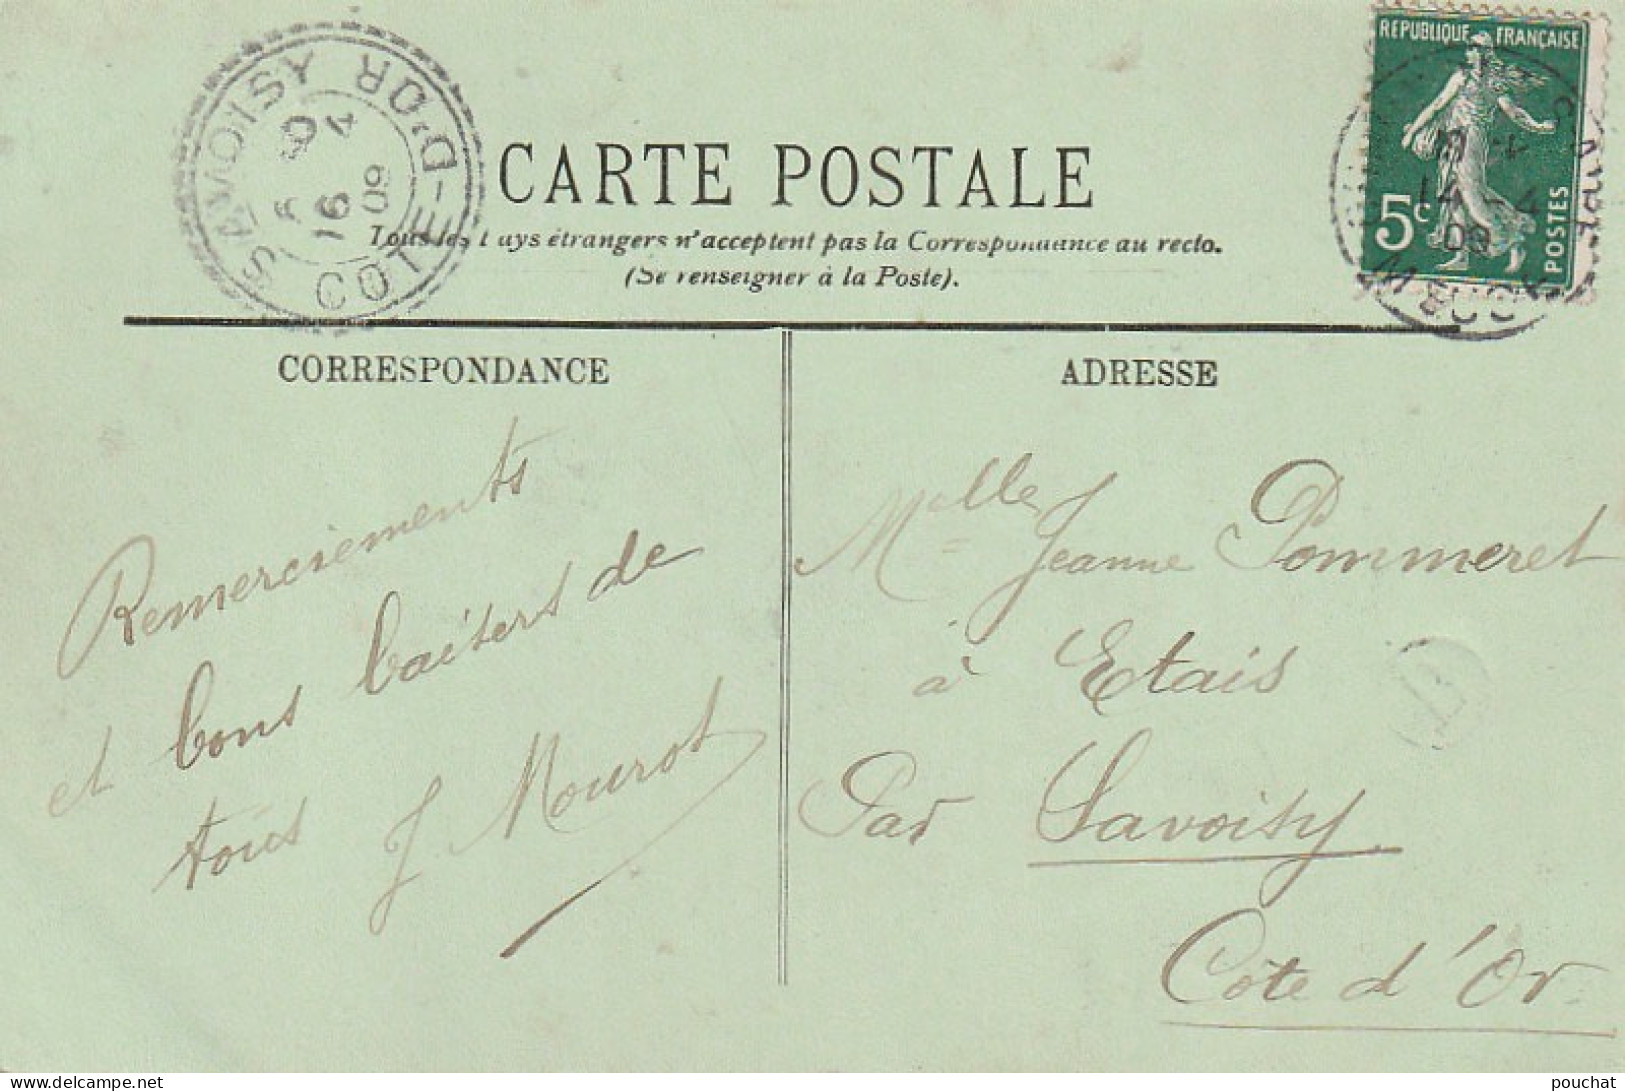 REPUBLIQUE FRANÇAISE
5c
POSTES
MEUSE
14 - 4
09
SAVOISY
COTE-D'OR
16
09
CARTE POSTALE
Tous les Pays étrangers n'acceptent pas la Correspondance au recto.
(Se renseigner à la Poste).
CORRESPONDANCE
Remerciements
et bons baisers de
tous J Mourot
ADRESSE
Mlle Jeanne Pommeret
à Etais
Par Savoisy
Côte d'Or
pouchat